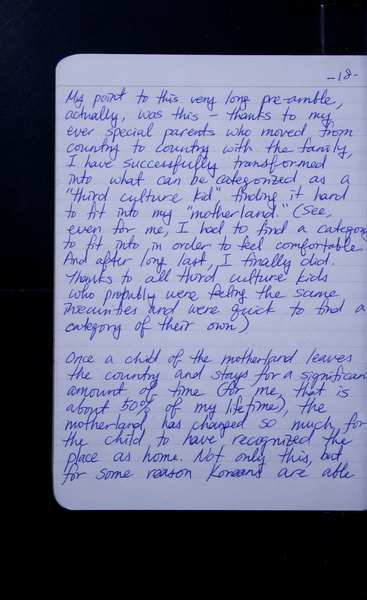 -18-
My point to this very long pre-amble,
actually, was this - thanks to my
ever special parents who moved from
country to country with the family,
I have successfully transformed
into what can be categorized as a
"third culture kid" finding it hard
to fit into my "motherland." (See,
even for me, I had to find a category
to fit into in order to feel comfortable.
And after long last, I finally did.
Thanks to all third culture kids
who probably were feeling the same
insecurities and were quick to find a
category of their own)
Once a child of the motherland leaves
the country and stays for a significant
amount of time (for me, that is
about 50% of my lifetime), the
motherland has changed so much, for
the child to have recognized the
place as home. Not only this, but
for some reason Koreans are able